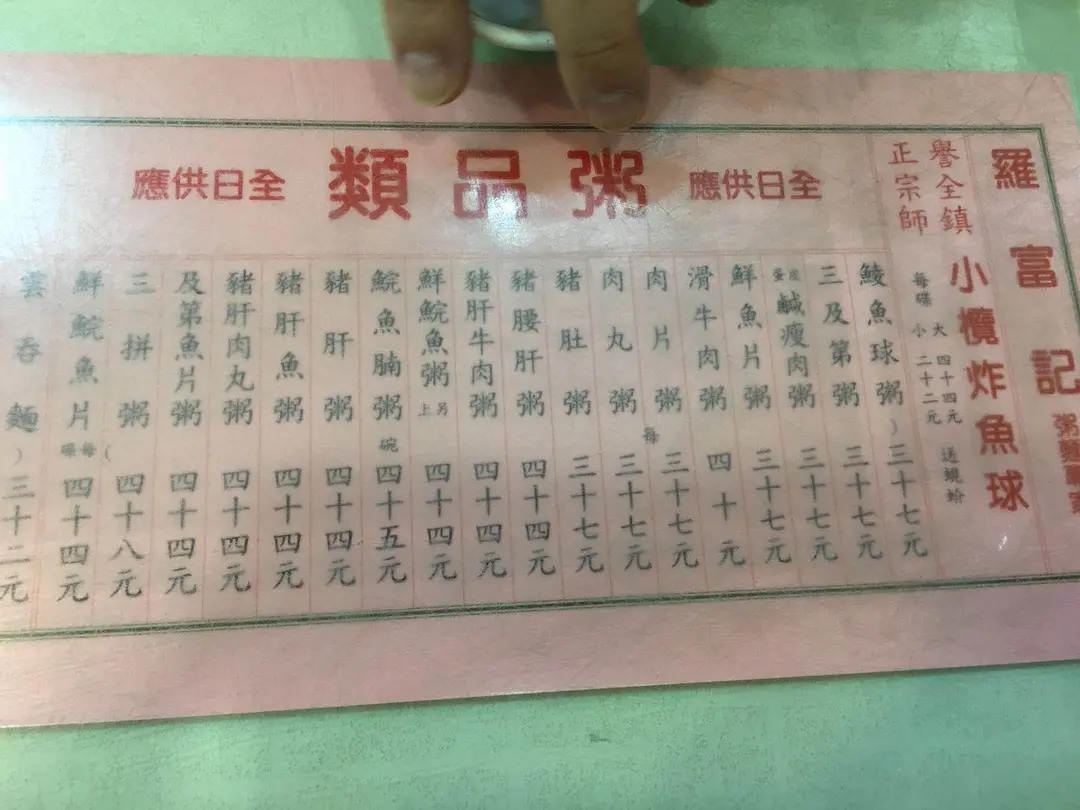 羅富記
粥麵專家
小欖炸魚球
譽全鎮
正宗師
每碟 大 四十四元
小 二十二元
送蜆蚧
全日供應
粥品類
全日供應
鯪魚球粥 三十七元
三及第粥 三十七元
皮蛋鹹瘦肉粥 三十七元
鮮魚片粥 三十七元
滑牛肉粥 四十元
肉片粥 三十七元
肉丸粥 三十七元
豬肚粥 三十七元
每
豬腰肝粥 四十四元
豬肝牛肉粥 四十四元
鮮鯇魚粥 另上 四十四元
鯇魚腩粥 四十五元
碗
豬肝粥 四十四元
豬肝魚粥 四十四元
豬肝肉丸粥 四十四元
及第魚片粥 四十四元
三拼粥 四十八元
鮮鯇魚片 (每碟 四十四元
雲吞麵 ) 三十二元